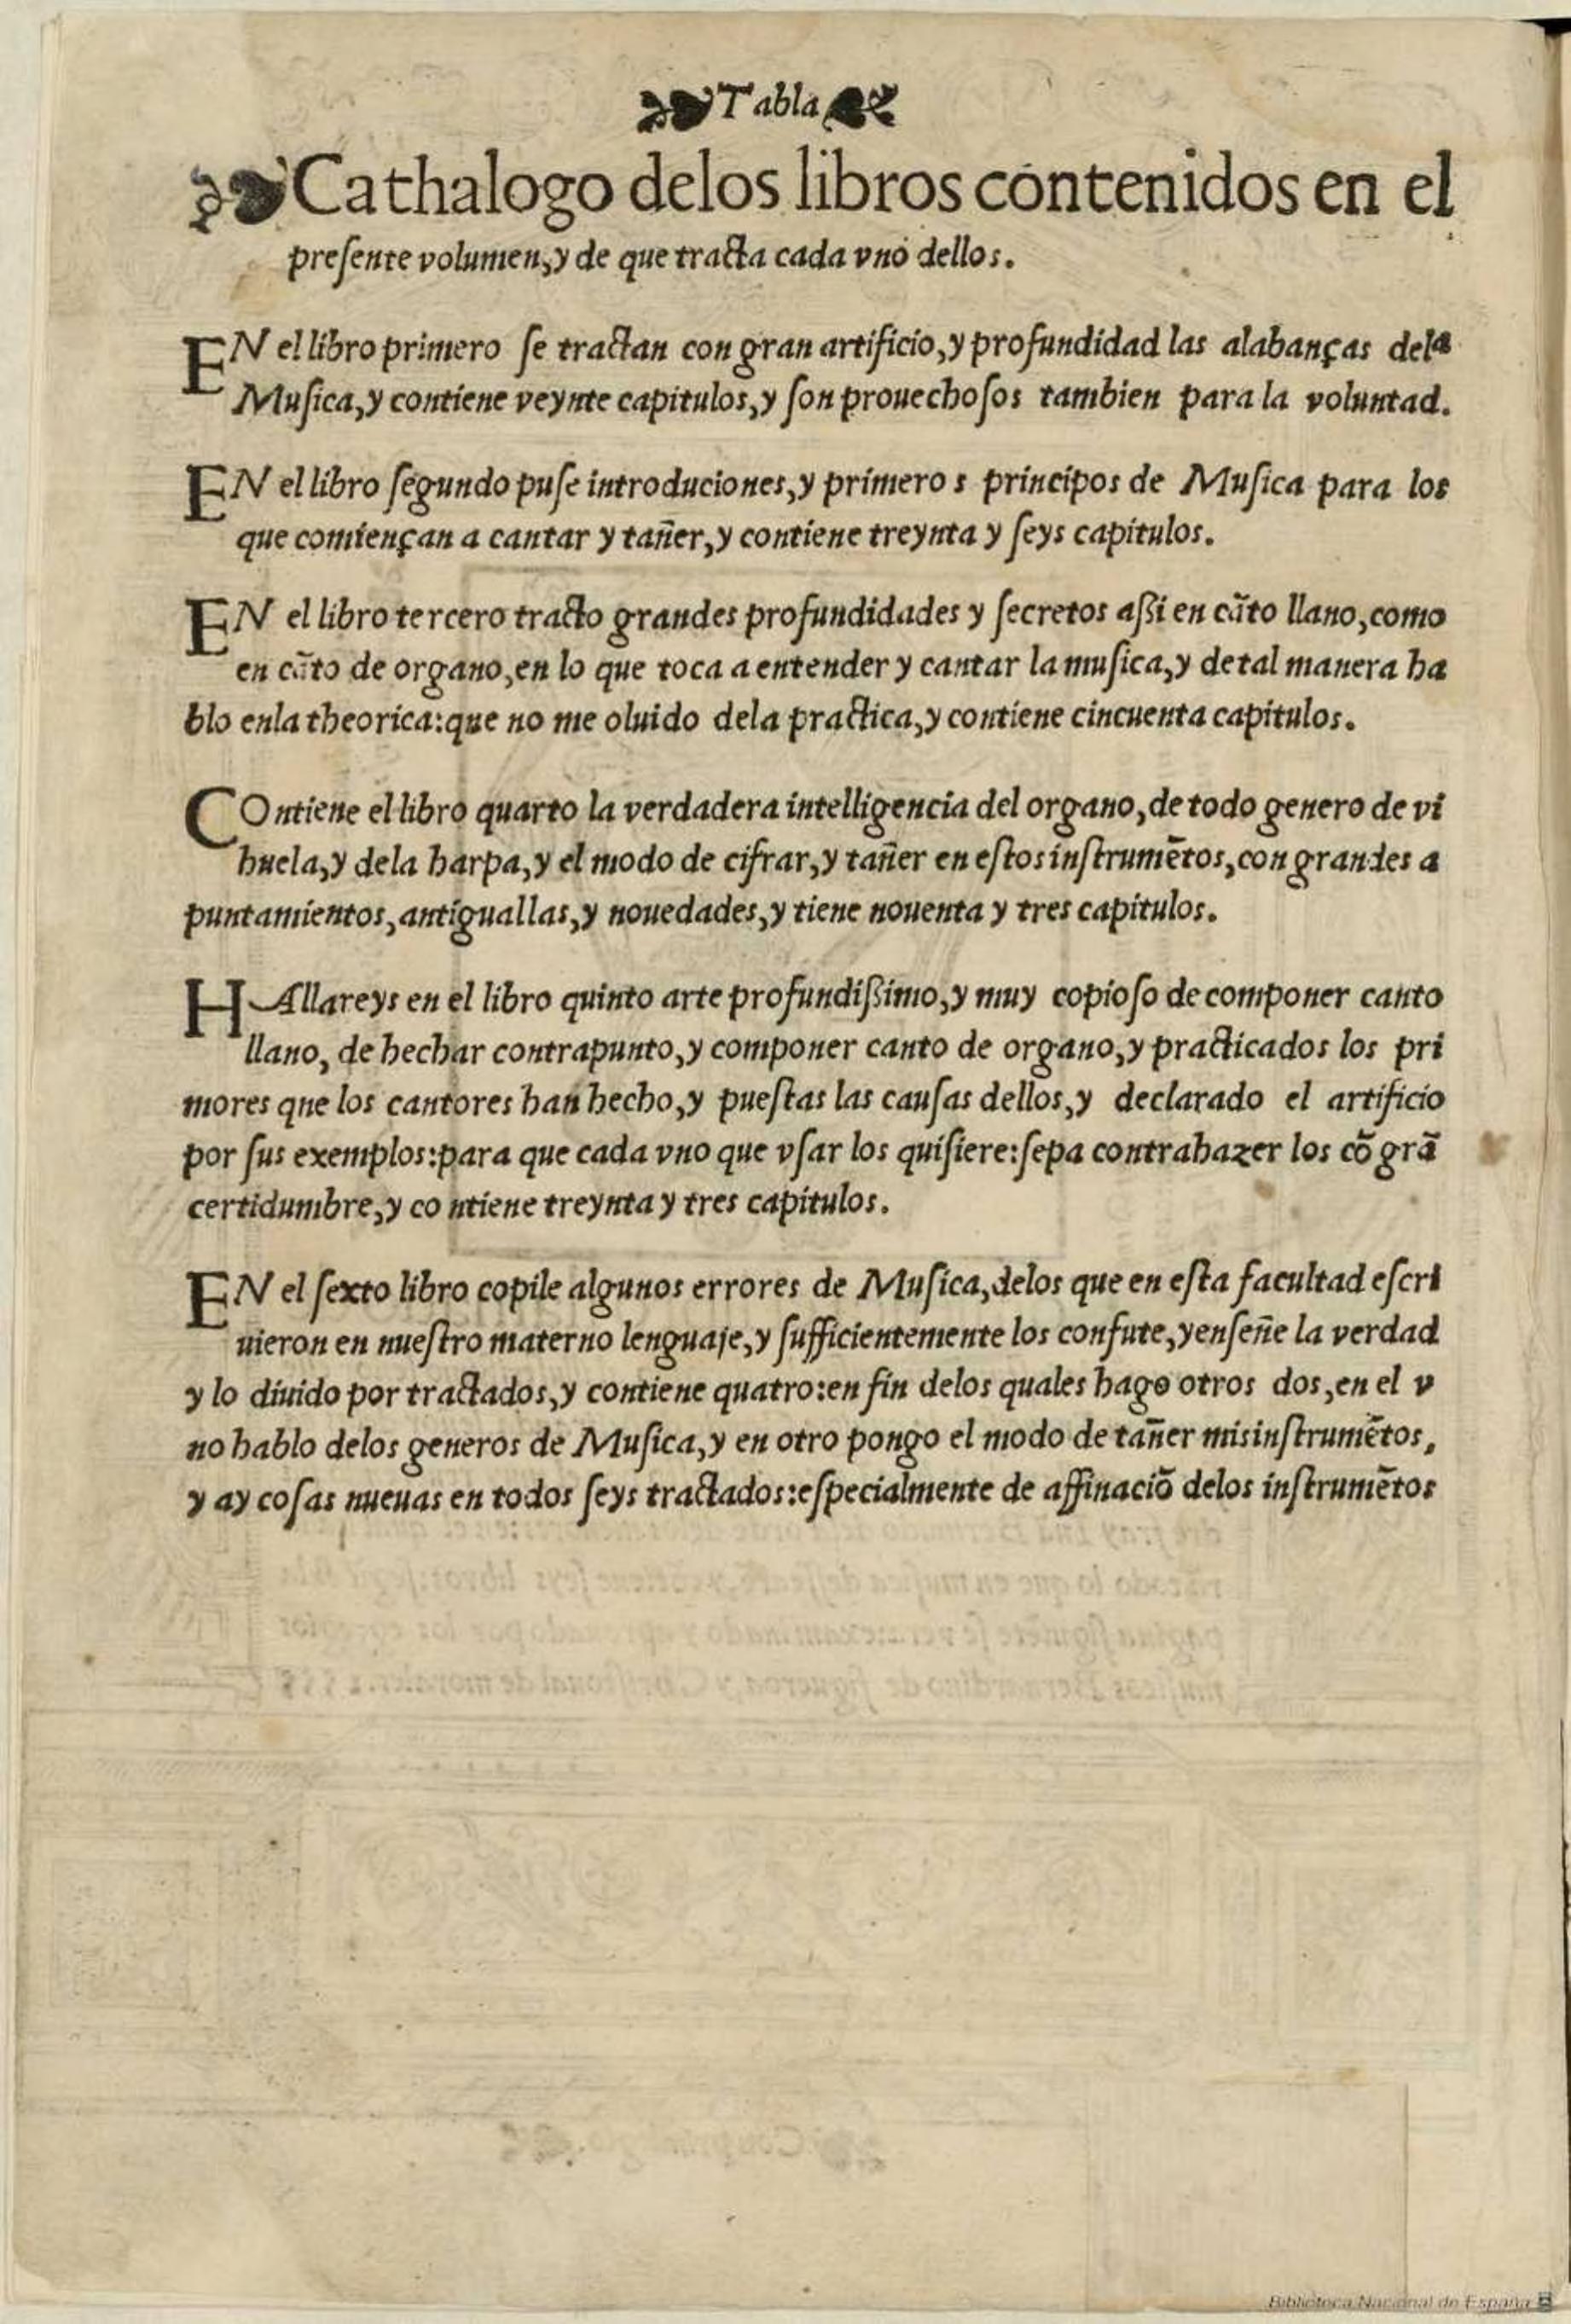 Tabla
Cathalogo delos libros contenidos en el
preſente volumen, y de que tracta cada vno dellos.
EN el libro primero ſe tractan con gran artificio, y profundidad las alabanças dela
Muſica, y contiene veynte capitulos, y ſon prouechoſos tambien para la voluntad.
EN el libro ſegundo puſe introduciones, y primeros principos de Muſica para los
que comiençan a cantar y tañer, y contiene treynta y ſeys capitulos.
EN el libro tercero tracto grandes profundidades y ſecretos aſsi en cãto llano, como
en cãto de organo, en lo que toca a entender y cantar la muſica, y de tal manera ha
blo enla theorica: que no me oluido dela practica, y contiene cincuenta capitulos.
COntiene el libro quarto la verdadera intelligencia del organo, de todo genero de vi
huela, y dela harpa, y el modo de cifrar, y tañer en eſtos inſtrumẽtos, con grandes a
puntamientos, antiguallas, y nouedades, y tiene nouenta y tres capitulos.
HAllareys en el libro quinto arte profundiſsimo, y muy copioſo de componer canto
llano, de hechar contrapunto, y componer canto de organo, y practicados los pri
mores que los cantores han hecho, y pueſtas las cauſas dellos, y declarado el artificio
por ſus exemplos: para que cada vno que vſar los quiſiere: ſepa contrahazer los cõ grã
certidumbre, y contiene treynta y tres capitulos.
EN el ſexto libro copile algunos errores de Muſica, delos que en eſta facultad eſcri
uieron en nueſtro materno lenguaje, y ſufficientemente los confute, y enſeñe la verdad
y lo diuido por tractados, y contiene quatro: en fin delos quales hago otros dos, en el v
no hablo delos generos de Muſica, y en otro pongo el modo de tañer mis inſtrumẽtos,
y ay coſas nueuas en todos ſeys tractados: eſpecialmente de affinaciõ delos inſtrumẽtos
Biblioteca Nacional de España